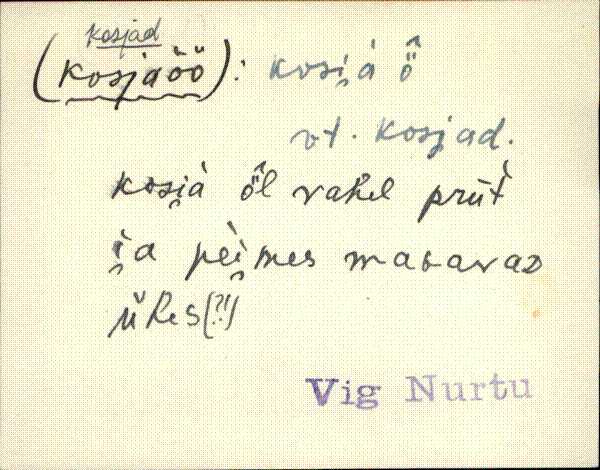 kosjad
(kosjaöö): kosi̯à ö̂
vt. kosjad.
kosi̯à ö̂l vahel prūt̀
i̯a pèi̯mes magavaD
ǜhes(?!)
Vig Nurtu